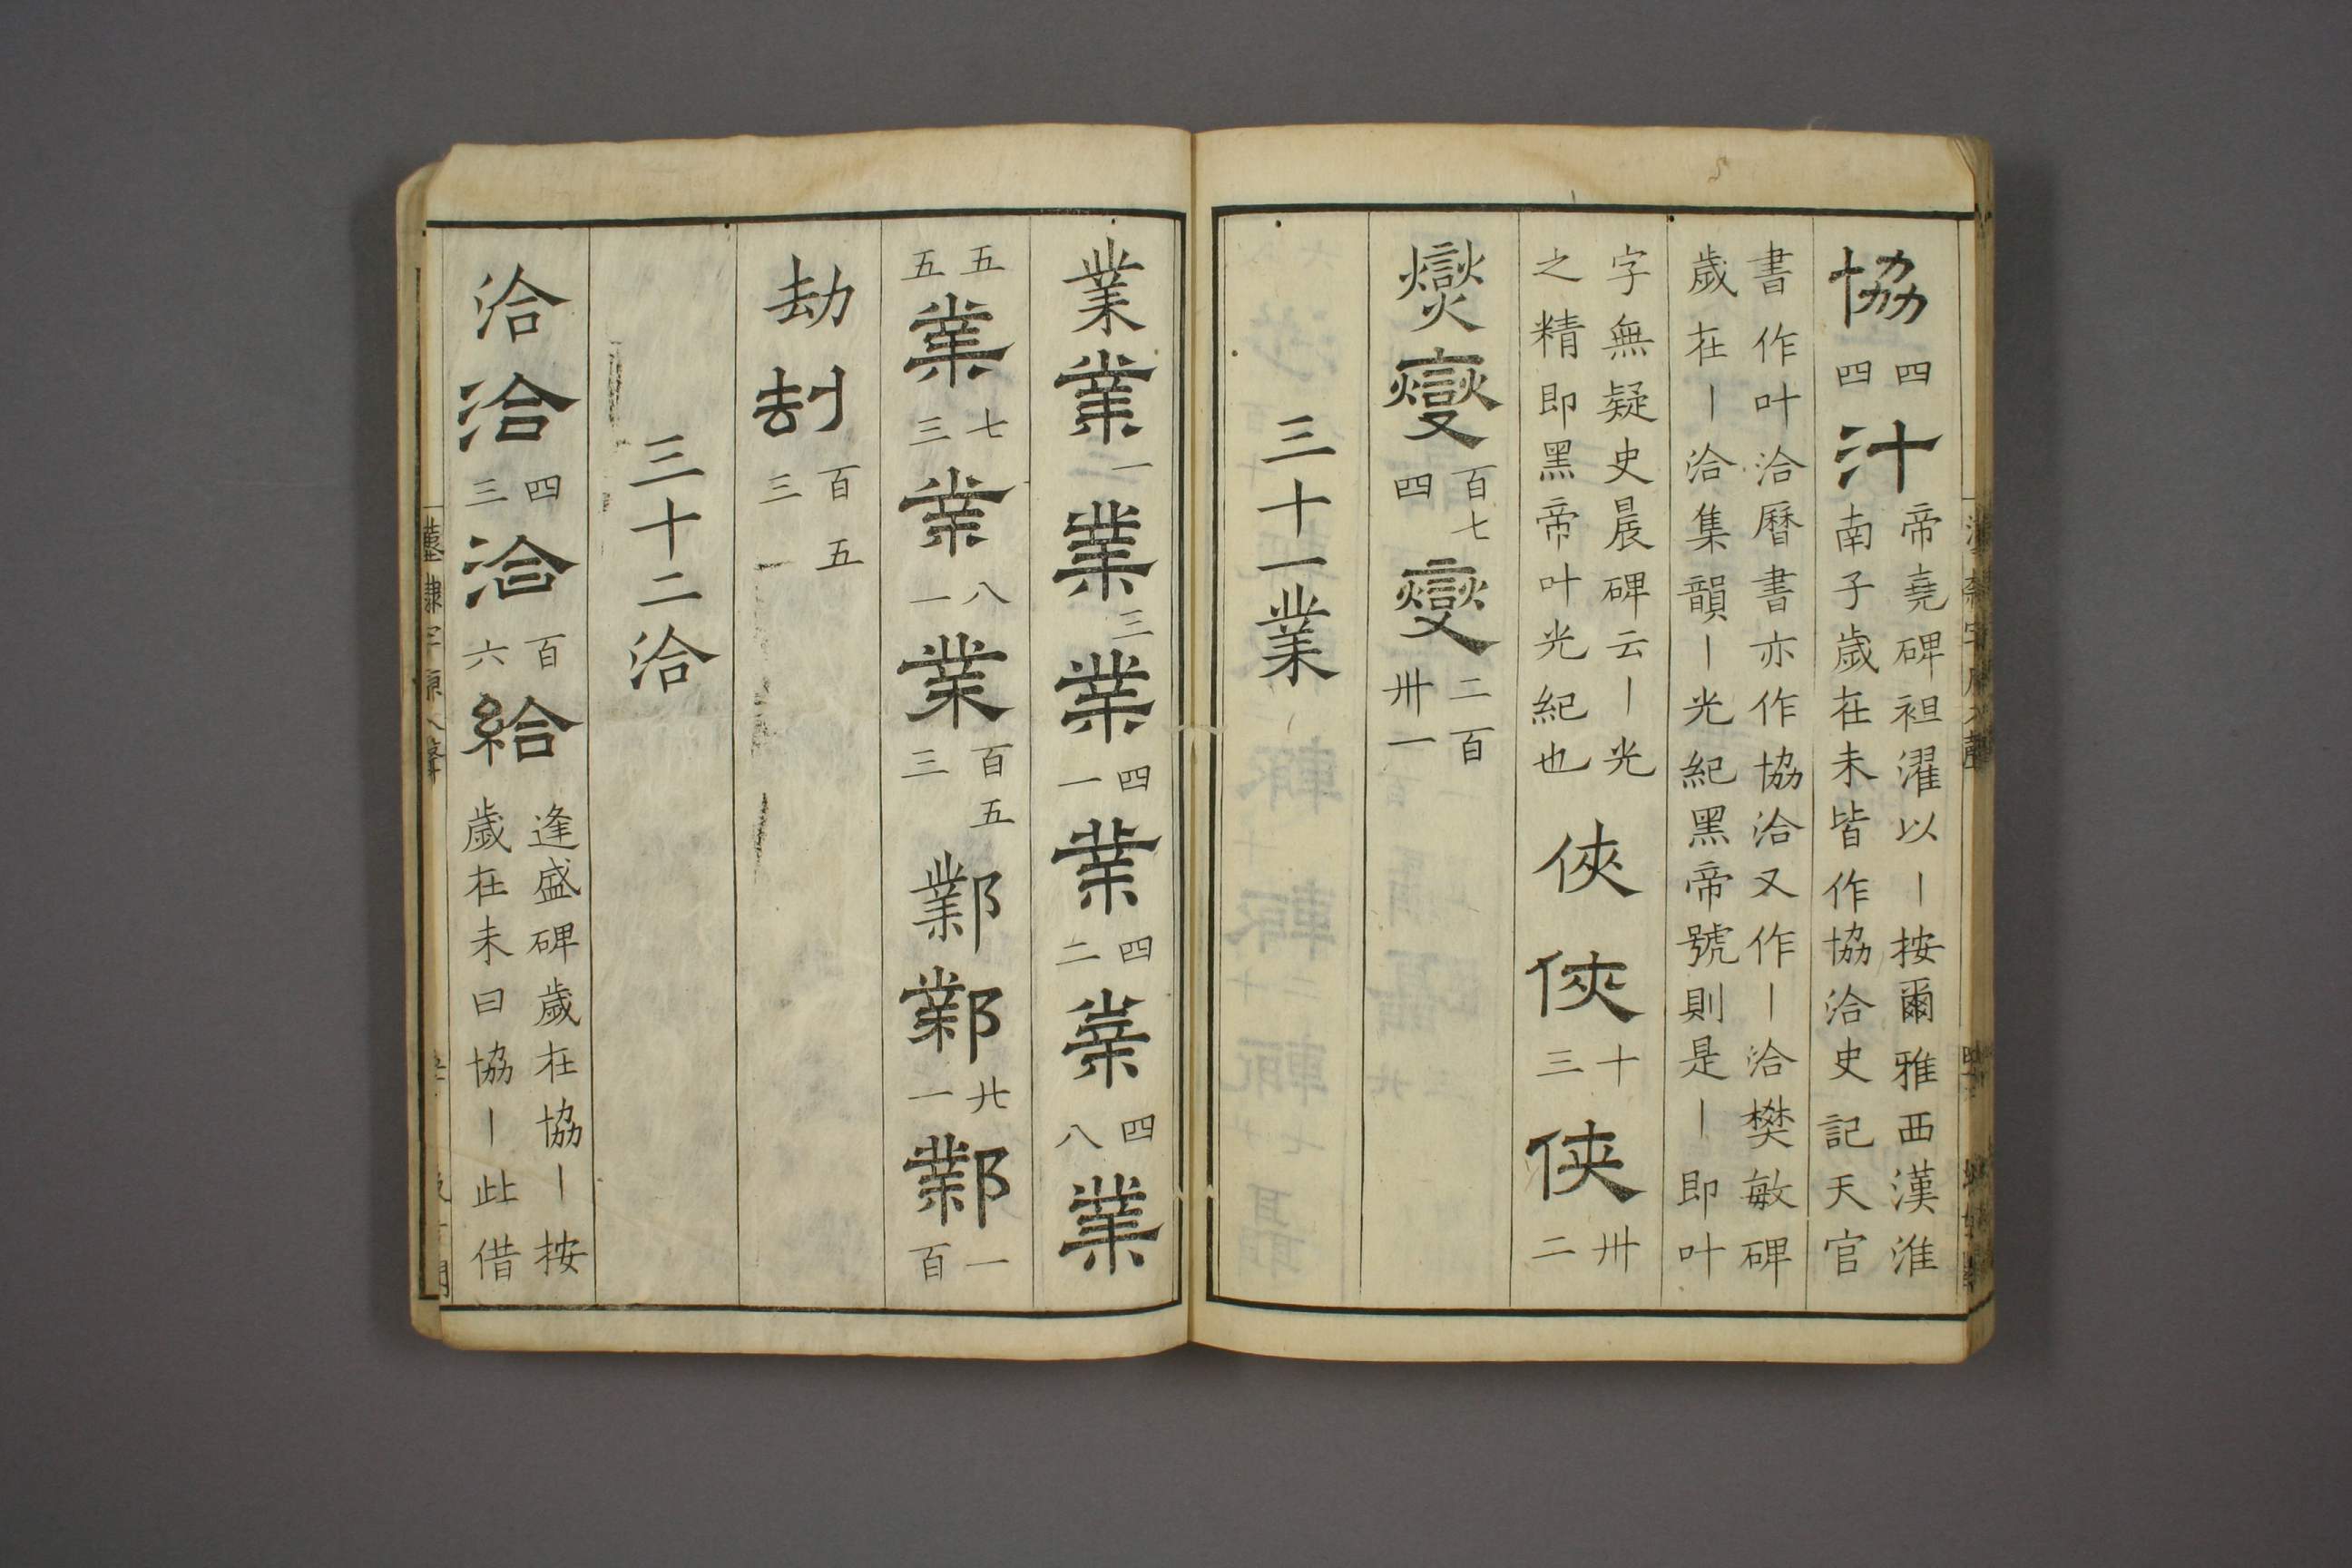 協四四汁帝堯碑袒濯以｜按爾雅西漢淮南子歲在未皆作協洽史記天官
書作叶洽曆書亦作協洽又作｜洽樊敏碑歲在｜洽集韻｜光紀黑帝號則是｜即叶
字無疑史晨碑云｜光之精即黑帝叶光紀也俠俠十三俠卅二
燮燮百七四燮二百卅一
三十一業
業業一業三業四一業四二業四八業
五五業七三業八一業百五三鄴鄴廿一鄴一百
劫刦百五三
三十二洽
洽洽四三洽百六給逢盛碑歲在協｜按歲在未曰協｜此借